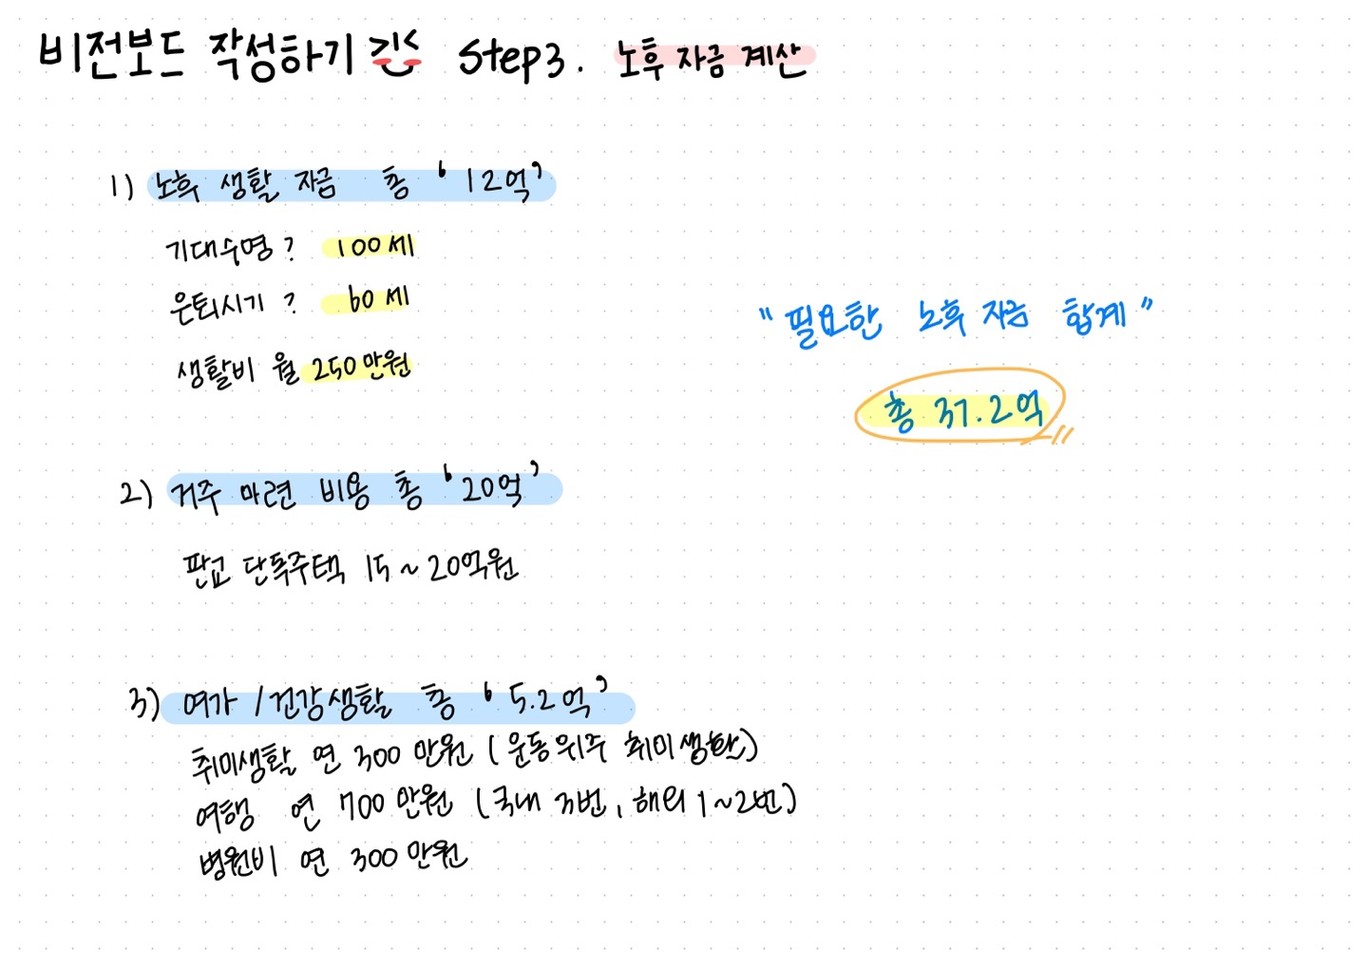 비전보드 작성하기 Step3. 노후 자금 계산
1) 노후 생활 자금 총 ‘12억’
기대수명? 100세
은퇴시기? 60세
생활비 월 250만원
"필요한 노후 자금 합계"
총 37.2억
2) 거주 마련 비용 총 ‘20억’
판교 단독주택 15~20억원
3) 여가/건강생활 총 ‘5.2억’
취미생활 연 300만원 (운동위주 취미생활)
여행 연 700만원 (국내 3번, 해외 1~2번)
병원비 연 300만원